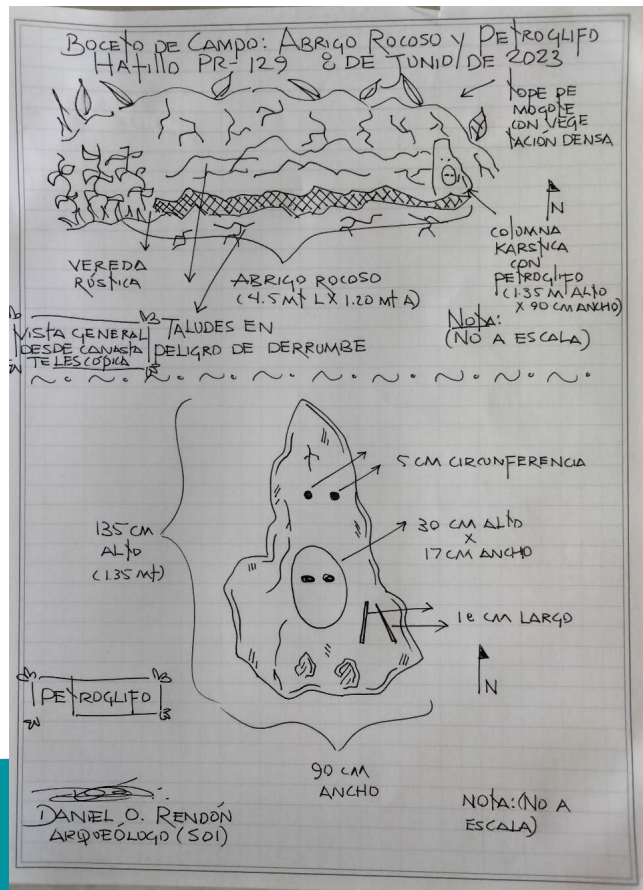 BOCETO DE CAMPO: ABRIGO ROCOSO Y PETROGLIFO
HATILLO PR-129 8 DE JUNIO/DE 2023
TOPE DE
MOGOTE
CON VEGE
TACIÓN DENSA
N
COLUMNA
KARSTICA
CON
PETROGLIFO
(1.35 M ALTO
X 90 CM ANCHO)
VEREDA
RÚSTICA
ABRIGO ROCOSO
(4.5 Mt L X 1.20 Mt A)
NOTA:
(NO A ESCALA)
VISTA GENERAL
DESDE CANASTA
TELESCÓPICA
TALUDES EN
PELIGRO DE DERRUMBE
5 CM CIRCUNFERENCIA
135 CM
ALTO
(1.35 Mt)
30 CM ALTO
X
17 CM ANCHO
18 CM LARGO
N
PETROGLIFO
90 CM
ANCHO
DANIEL O. RENDÓN
ARQUEÓLOGO (SOI)
NOTA: (NO A
ESCALA)